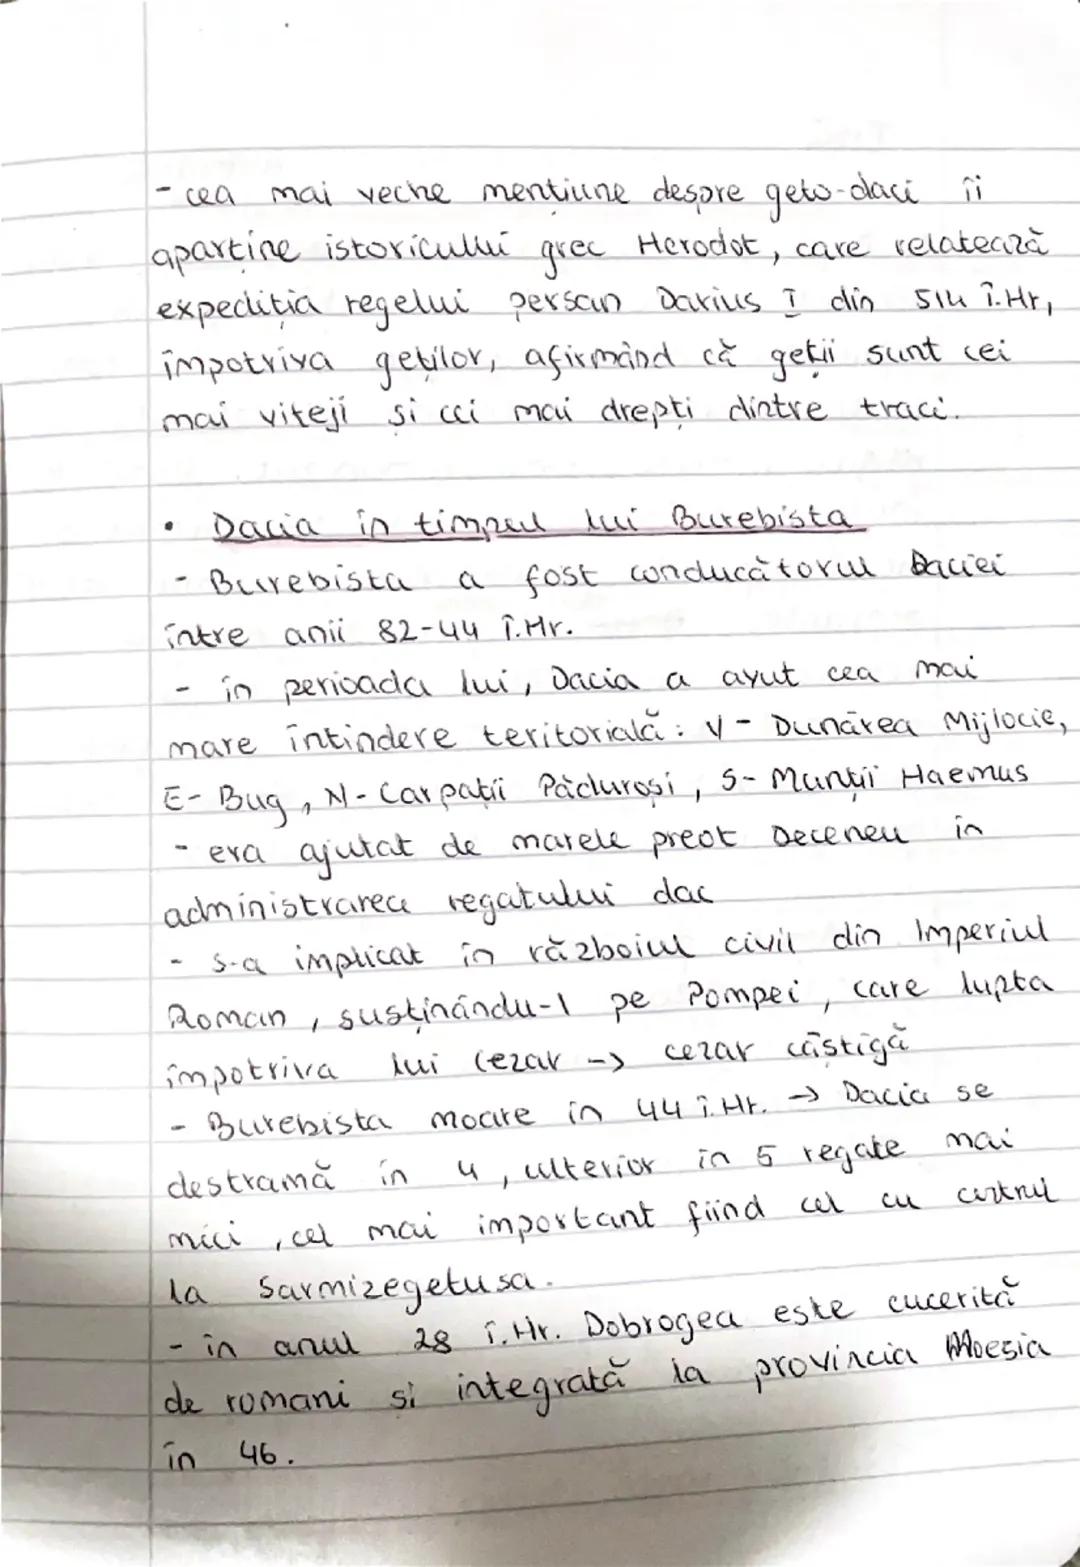 - cea mai veche mențiune despre geto-daci îi
aparține istoricului grec Herodot, care relatează
expediția regelui persan Darius I din 514 î.Hr,
împotriva geților, afirmând că geții sunt cei
mai viteji și cei mai drepți dintre traci.
• Dacia în timpul lui Burebista
- Burebista a fost conducătorul Daciei
între anii 82-44 î.Hr.
- în perioada lui, Dacia a avut cea mai
mare întindere teritorială: V - Dunărea Mijlocie,
E- Bug, N- Carpații Păduroși, S- Munții Haemus
- era ajutat de marele preot Deceneu în
administrarea regatului dac
- s-a implicat în războiul civil din Imperiul
Roman, susținându-l pe Pompei, care lupta
împotriva lui Cezar -> cezar câștigă
- Burebista moare în 44 î.Hr. -> Dacia se
destramă în 4, ulterior în 5 regate mai
mici, cel mai important fiind cel cu centrul
la Sarmizegetusa.
- în anul 28 î.Hr. Dobrogea este cucerită
de romani și integrată la provincia Moesia
în 46.